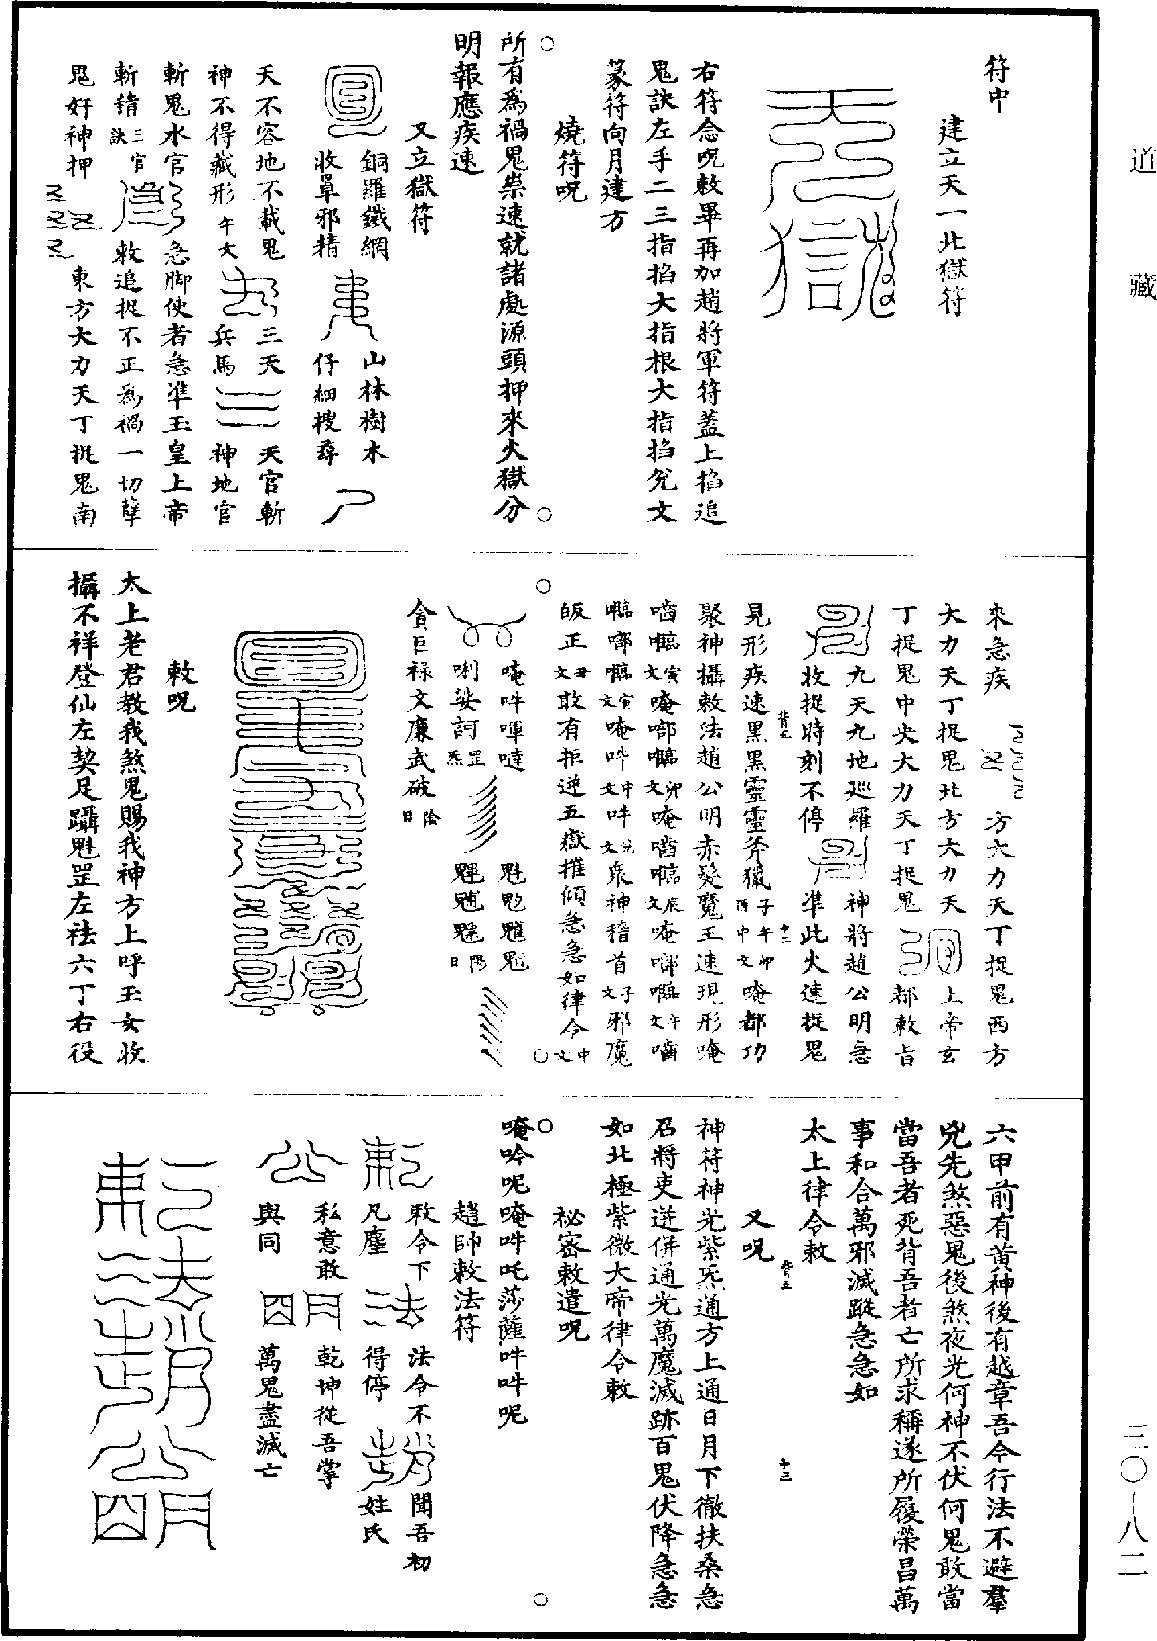 道藏
三〇—八二
符中
建立天一北獄符
右符念呪敕畢再加趙將軍符蓋上掐追
鬼訣左手二三指掐大指根大指掐兌文
篆符向月建方
燒符呪
所有為禍鬼祟速就諸處源頭押來火獄分
明報應疾速
又立獄符
銅羅鐵網
收罩邪精
山林樹木
仔細搜尋
天不容地不載鬼
三天
天官斬
神不得藏形午文
兵馬
神地官
斬鬼水官
急脚使者急准玉皇上帝
斬精三官訣
敕追捉不正為禍一切孽
鬼奸神押
東方大力天丁捉鬼南
來急疾
方大力天丁捉鬼西方
大力天丁捉鬼北方大力天
上帝玄
丁捉鬼中央大力天丁捉鬼
都敕旨
九天九地巡羅
神將趙公明急
收捉時刻不停
准此火速捉鬼
見形疾速黑黑靈靈斧獄子午卯酉中文唵都功
聚神攝敕法趙公明赤髮魔王速現形唵
㘔寅文唵啷㘔卯文唵㘔辰文唵啷㘔午文
啷㘔寅文唵吽中文吽兌文衆神稽首子文邪魔
皈正丑文敢有拒逆五嶽摧傾急急如律令中文
唵吽㖶噠
唎娑訶罡炁
魁䰢䰣
貪巨祿文廉武破陰日
敕呪
太上老君教我煞鬼賜我神方上呼玉女收
攝不祥登仙左契足躡魁罡左祛六丁右役
六甲前有黃神後有越章吾今行法不避羣
兇先煞惡鬼後煞夜光何神不伏何鬼敢當
當吾者死背吾者亡所求稱遂所履榮昌萬
事和合萬邪滅蹤急急如
太上律令敕
又呪
神符神光紫炁通方上通日月下徹扶桑急
召將吏逆併通光萬魔滅跡百鬼伏降急急
如北極紫微大帝律令敕
十三
祕密敕遣呪
唵吟呢唵吽吒莎薩吽吽呢
趙帥敕法符
敕令下
凡塵
法令不
得停
聞吾初
姓氏
私意敢
與同
乾坤從吾掌
萬鬼盡滅亡